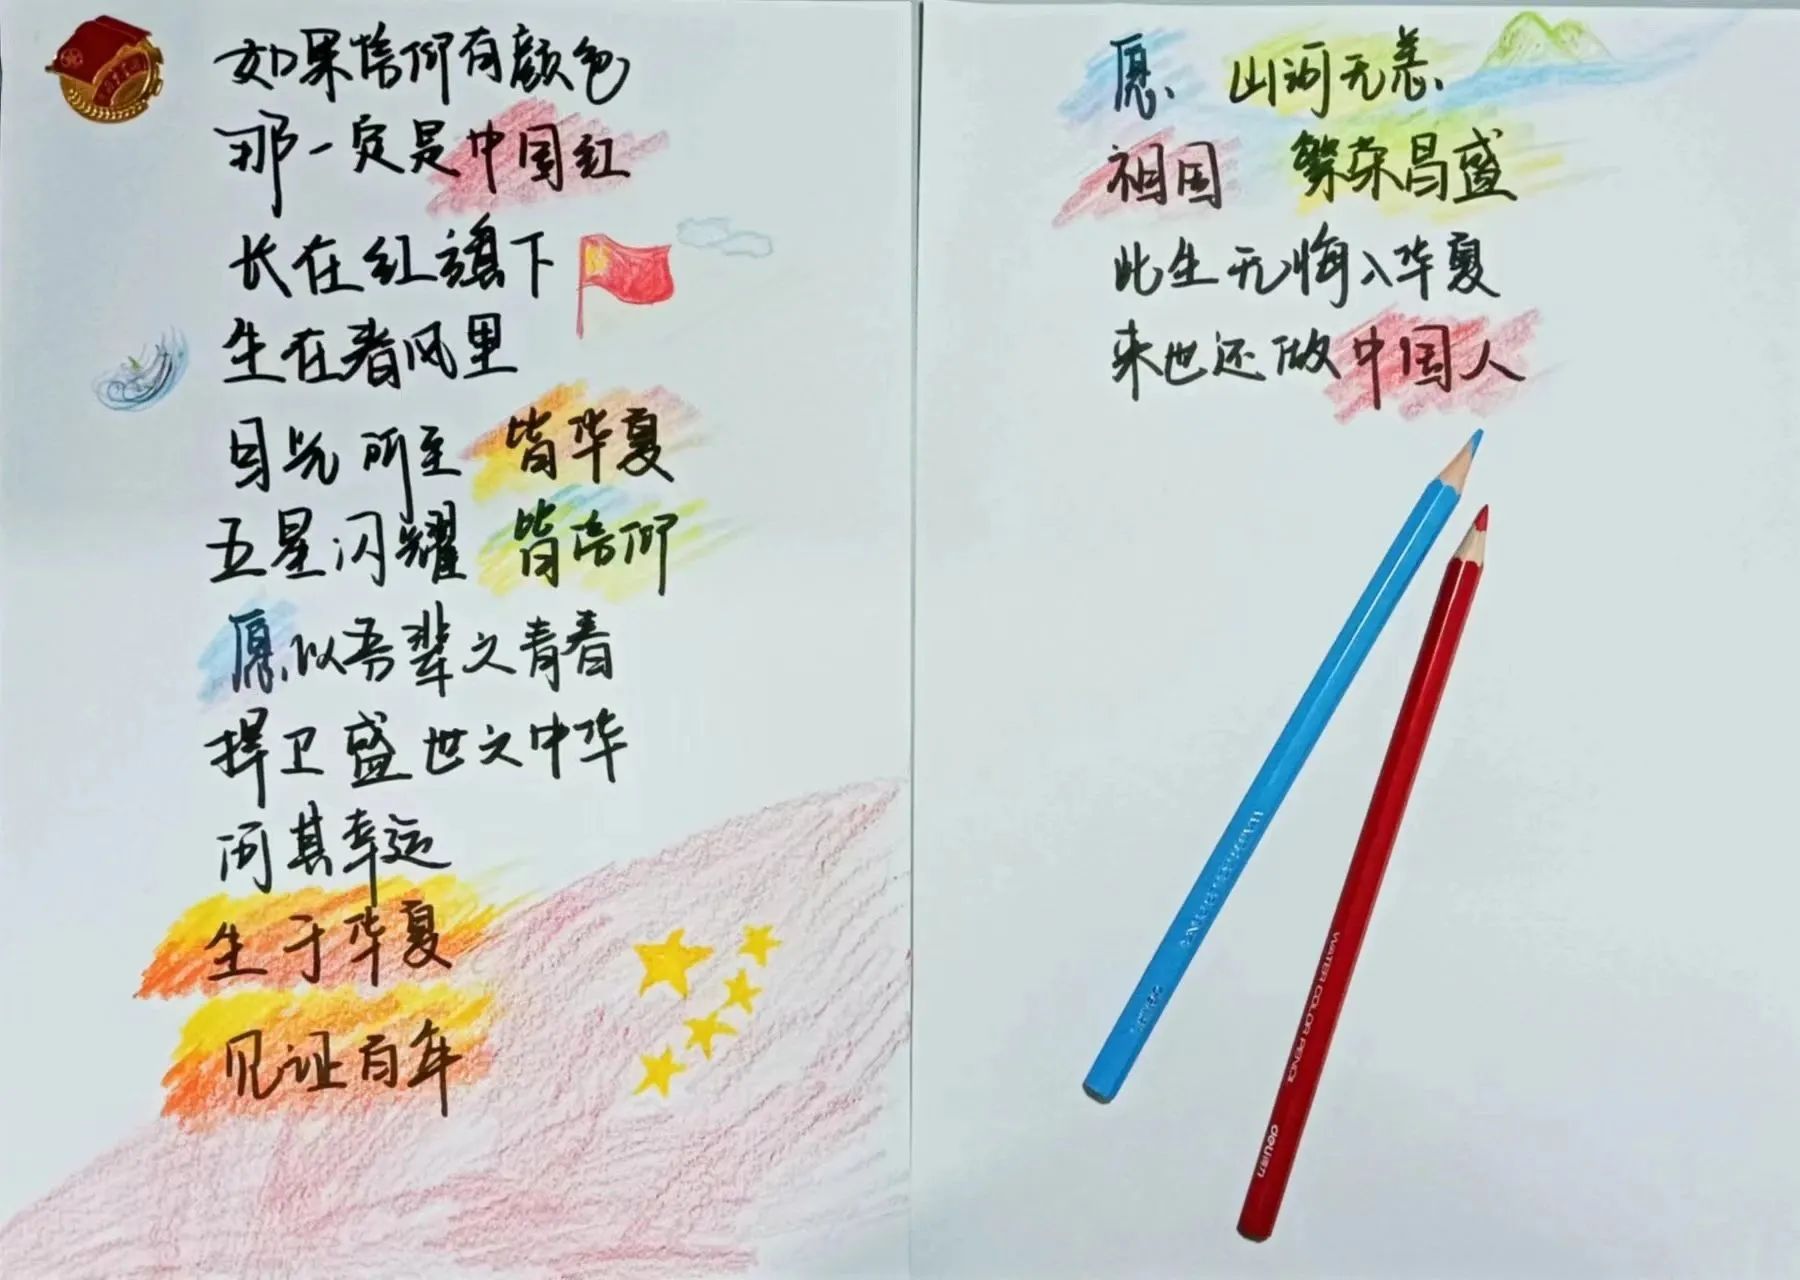 如果信仰有颜色
那一定是中国红
长在红旗下
生在春风里
目光所至 皆华夏
五星闪耀 皆信仰
愿以吾辈之青春
捍卫盛世之中华
何其幸运
生于华夏
见证百年
愿 山河无恙
祖国 繁荣昌盛
此生无悔入华夏
来世还做中国人
WATER COLOR PENCIL